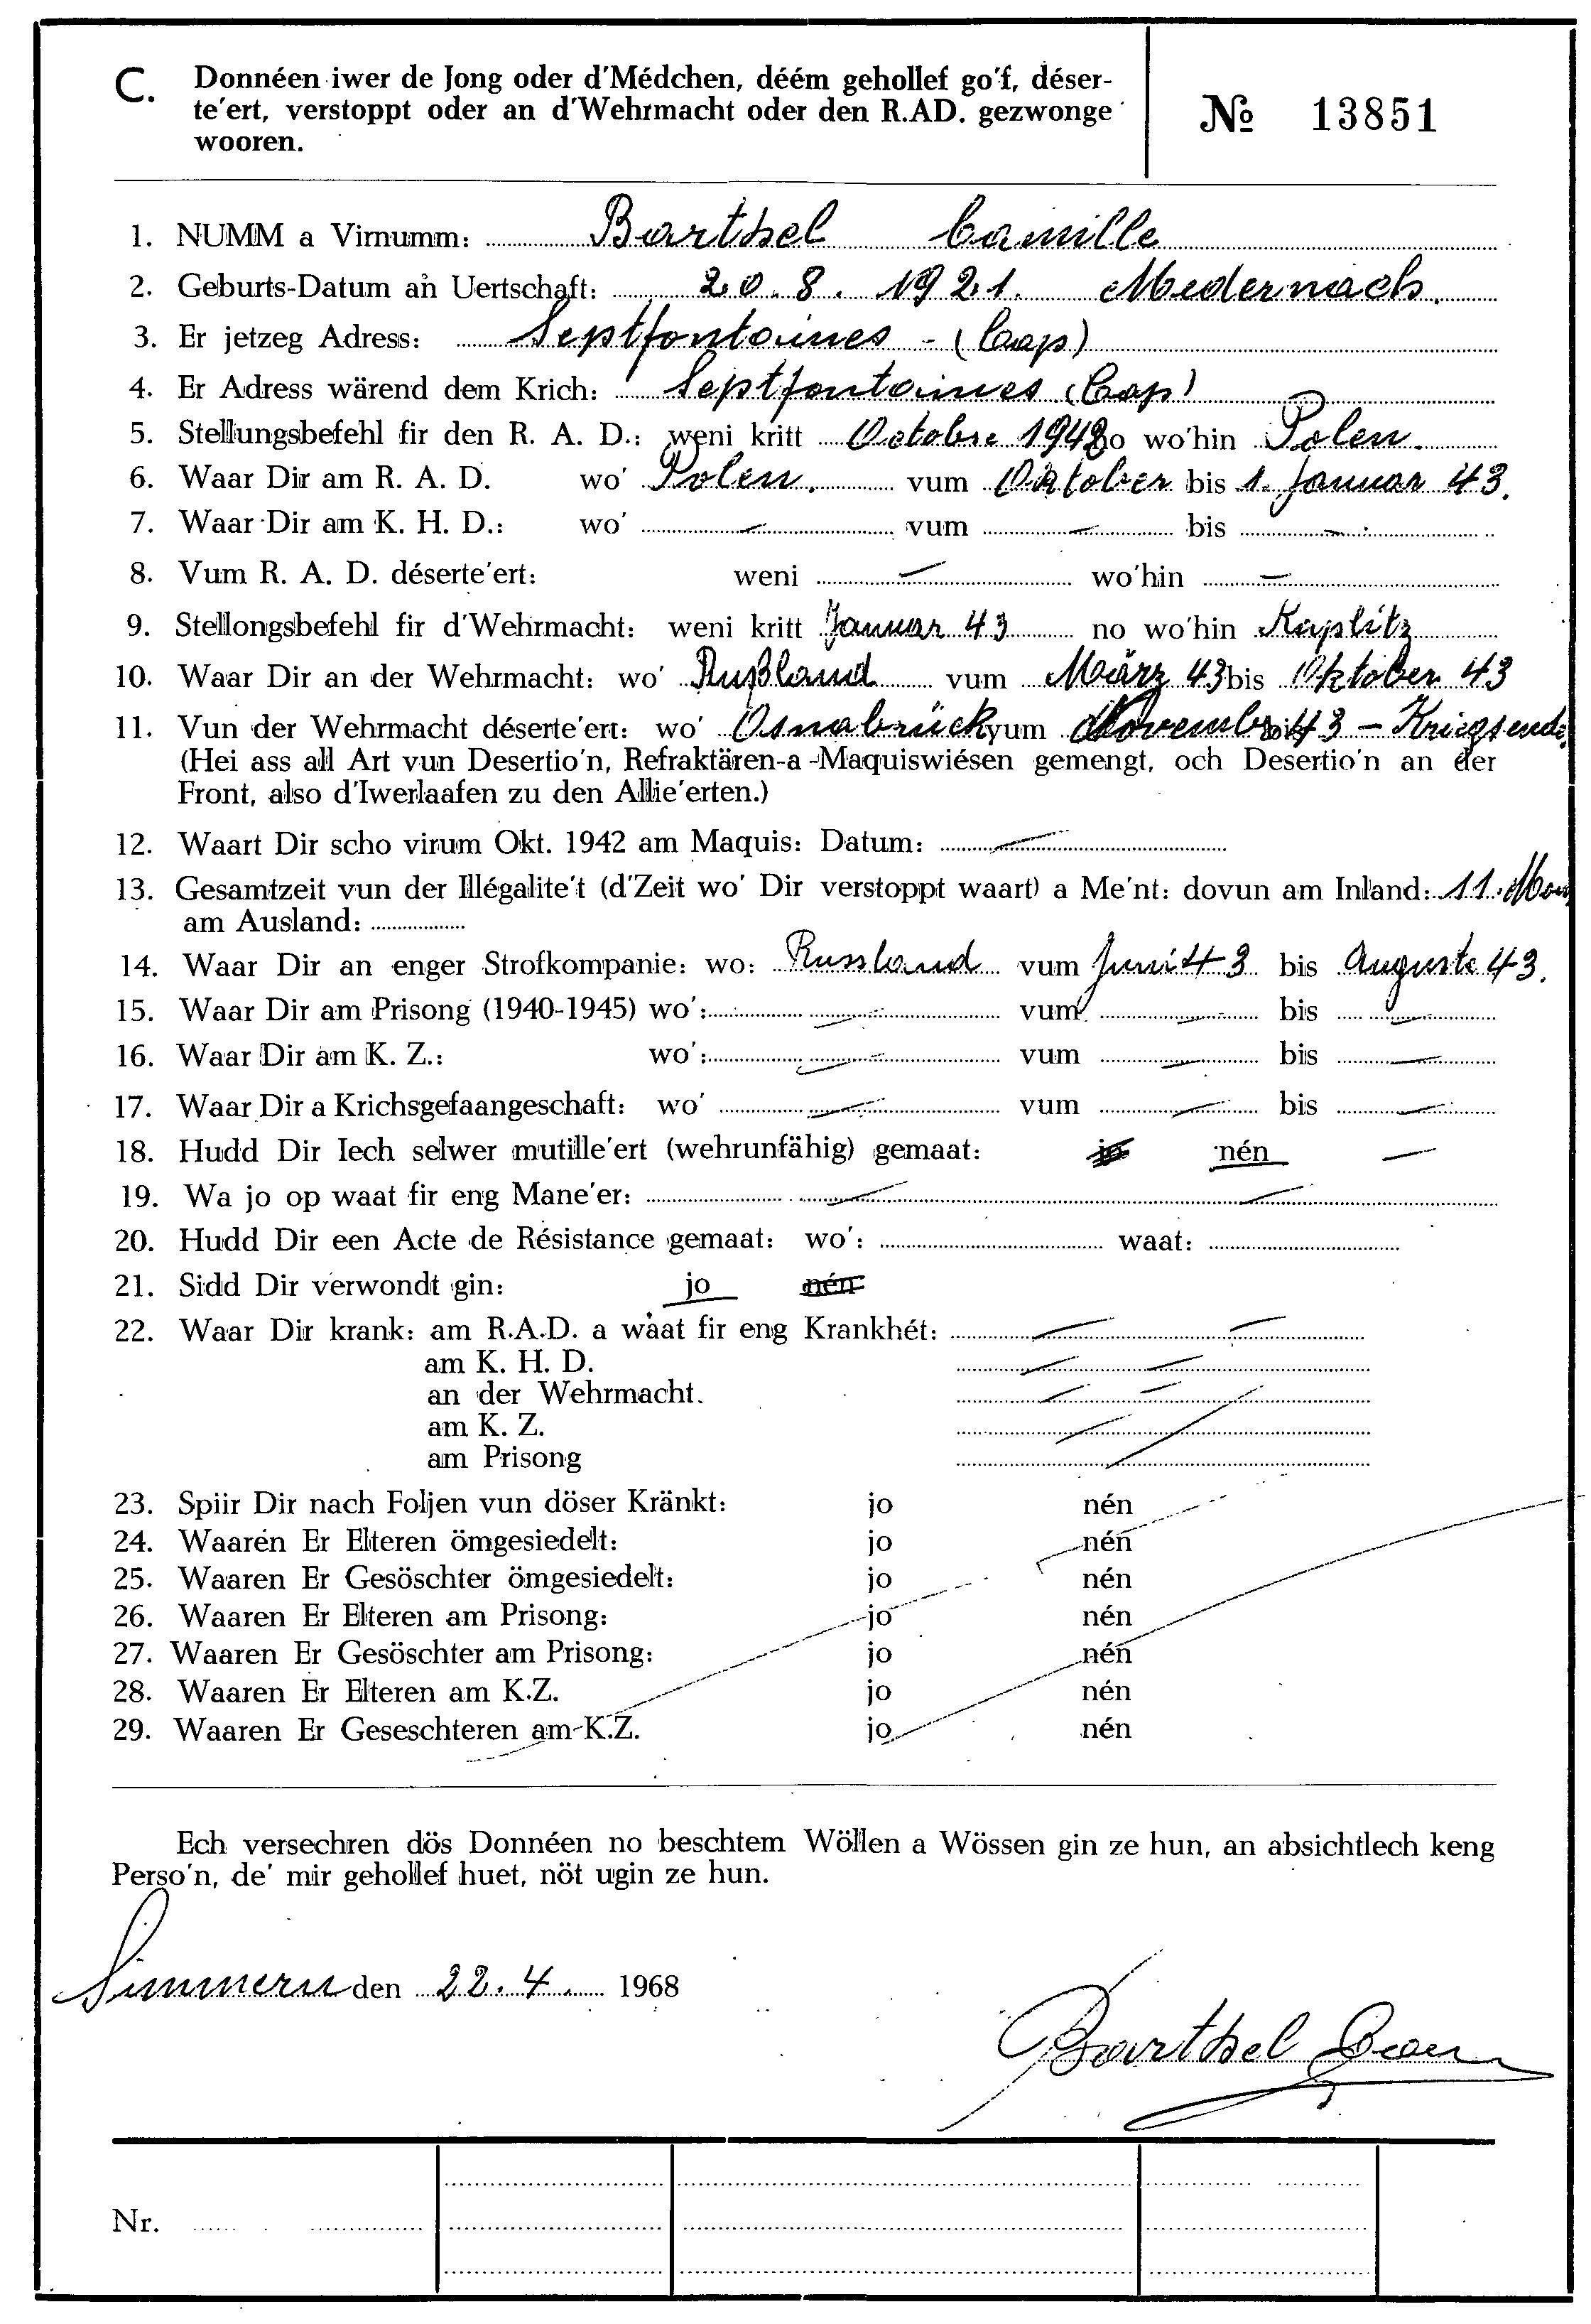 C. Donnéen iwer de Jong oder d'Médchen, déém gehollef go'f, déser-
te'ert, verstoppt oder an d'Wehrmacht oder den R.AD. gezwonge
wooren.
№ 13851
1. NUMM a Virnumm: Barthel Camille
2. Geburts-Datum an Uertschaft: 20.8.1921. Medernach.
3. Er jetzeg Adress: Septfontaines - (Cap)
4. Er Adress wärend dem Krich: Septfontaines (Cap)
5. Stellungsbefehl fir den R. A. D.: weni kritt Octobre 1942 no wo'hin Polen.
6. Waar Dir am R. A. D. wo' Polen. vum Oktober bis 1. Januar 43.
7. Waar Dir am K. H. D.: wo' — vum — bis —
8. Vum R. A. D. déserte'ert: weni — wo'hin —
9. Stellongsbefehl fir d'Wehrmacht: weni kritt Januar 43 no wo'hin Kaplitz
10. Waar Dir an der Wehrmacht: wo' Rußland vum März 43 bis Oktober 43
11. Vun der Wehrmacht déserte'ert: wo' Osnabrück vum November bis 43 - Kriegsende.
(Hei ass all Art vun Desertio'n, Refraktären-a-Maquiswiésen gemengt, och Desertio'n an der
Front, also d'Iwerlaafen zu den Allie'erten.)
12. Waart Dir scho virum Okt. 1942 am Maquis: Datum: —
13. Gesamtzeit vun der Illégalite't (d'Zeit wo' Dir verstoppt waart) a Me'nt: dovun am Inland: 11.
am Ausland:
14. Waar Dir an enger Strofkompanie: wo: Russland vum Juni 43 bis Auguste 43.
15. Waar Dir am Prisong (1940-1945) wo': — vum — bis —
16. Waar Dir am K. Z.: wo': — vum — bis —
17. Waar Dir a Krichsgefaangeschaft: wo' — vum — bis —
18. Hudd Dir Iech selwer mutille'ert (wehrunfähig) gemaat: jo nén —
19. Wa jo op waat fir eng Mane'er: — —
20. Hudd Dir een Acte de Résistance gemaat: wo': waat:
21. Sidd Dir verwondt gin: jo nén
22. Waar Dir krank: am R.A.D. a waat fir eng Krankhét: — —
am K. H. D. — —
an der Wehrmacht. — —
am K. Z. —
am Prisong —
23. Spiir Dir nach Foljen vun döser Kränkt: jo nén
24. Waaren Er Elteren ömgesiedelt: jo nén
25. Waaren Er Gesöschter ömgesiedelt: jo nén
26. Waaren Er Elteren am Prisong: jo nén
27. Waaren Er Gesöschter am Prisong: jo nén
28. Waaren Er Elteren am K.Z. jo nén
29. Waaren Er Geseschteren am K.Z. jo nén
Ech versechren dös Donnéen no beschtem Wöllen a Wössen gin ze hun, an absichtlech keng
Perso'n, de' mir gehollef huet, nöt ugin ze hun.
Simmern den 22.4. 1968
Barthel Cam
Nr.